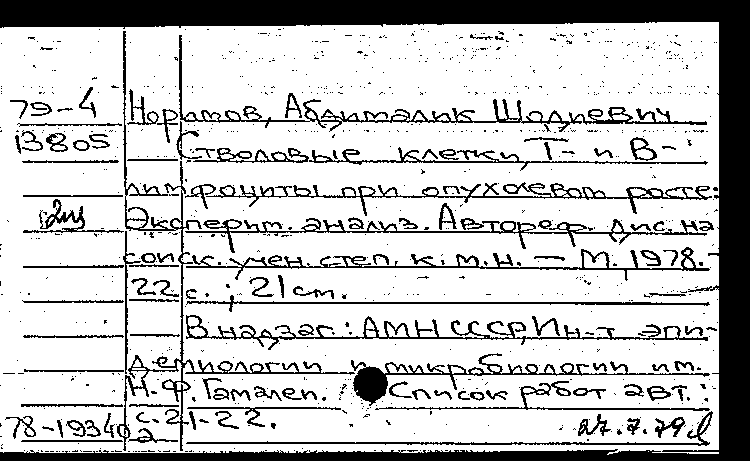 79-4 Норматов, Абдималик Шодиевич
13805 Стволовые клетки, Т- и В-
лимфоциты при опухолевом росте:
2щ Эксперим. анализ. Автореф. дис. на
соиск. учен. степ. к. м. н. — М. 1978. -
22 с. ; 21 см.
В надзаг: АМН СССР, Ин-т эпи-
демиологии и микробиологии им.
Н. Ф. Гамалеи. Список работ авт.:
78-19340 с. 21-22. 27.7.79
2